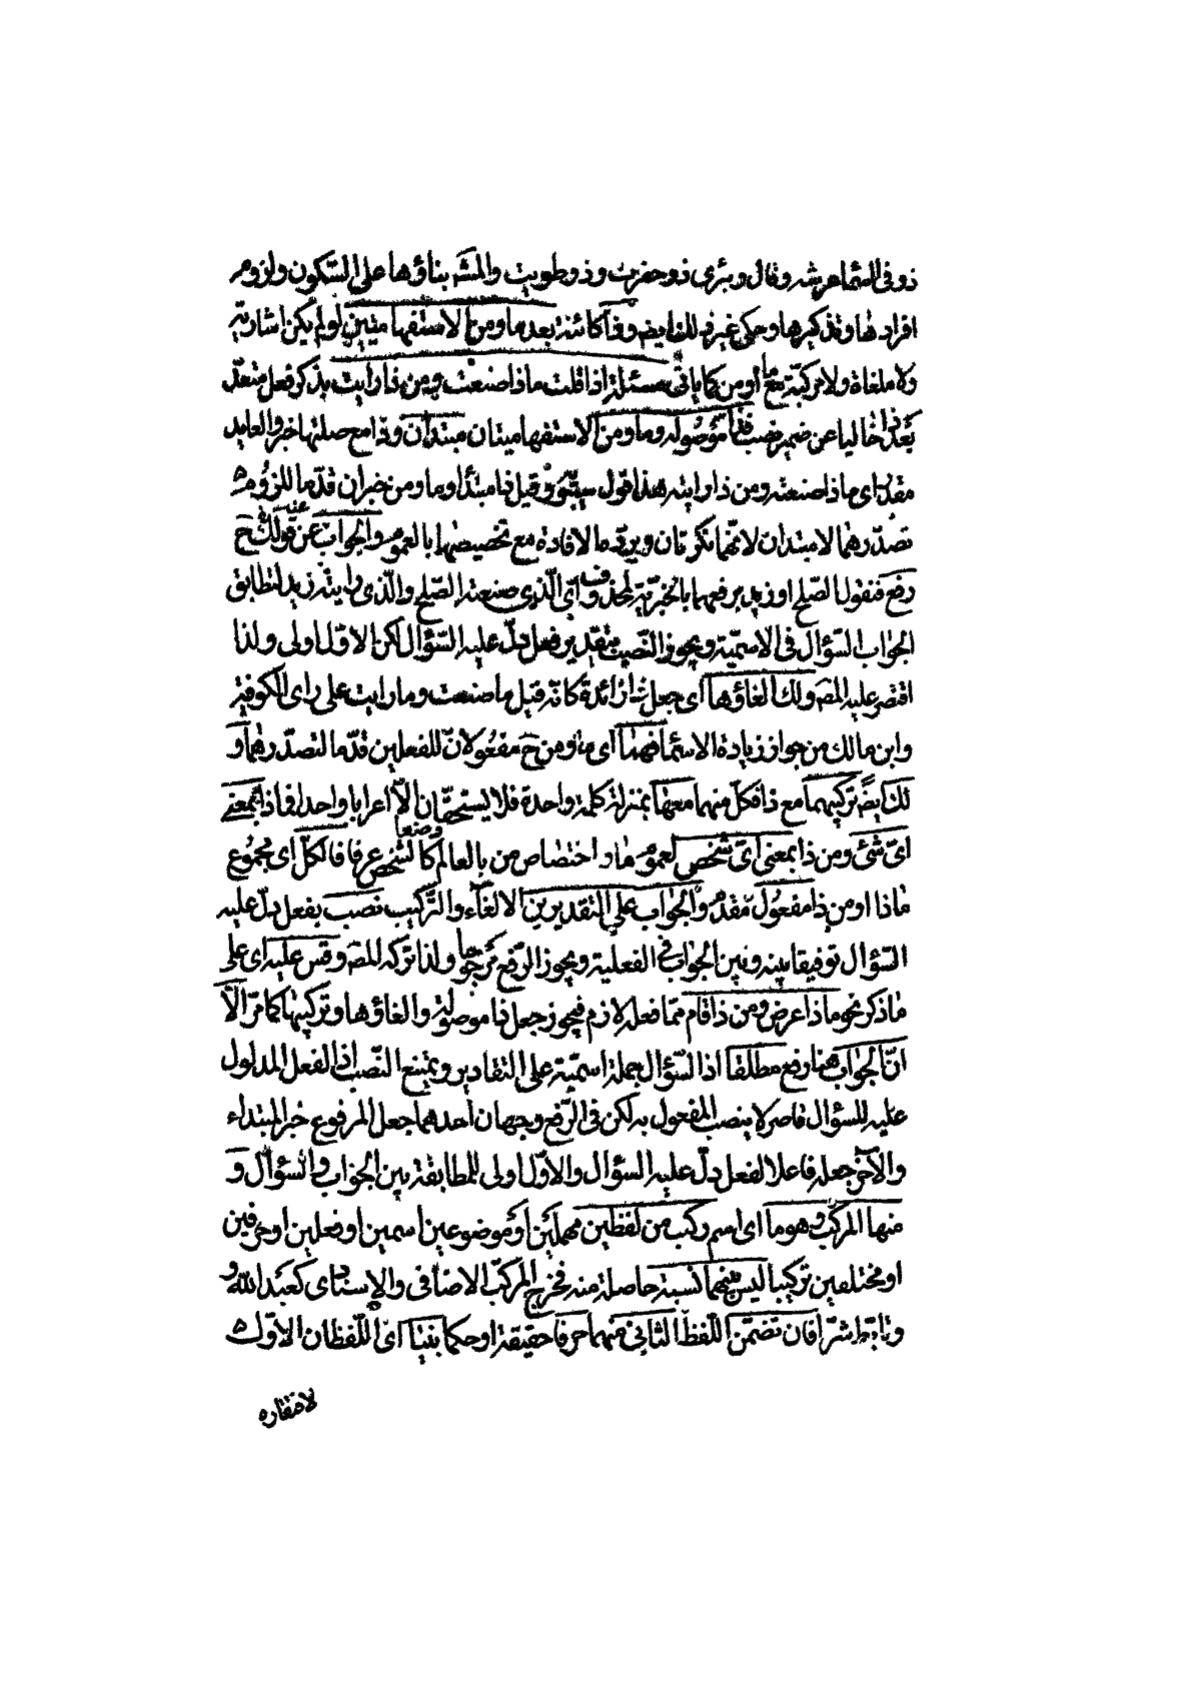 ذو في السماء عرشه وقال وبئري ذو حفرت وذو طويت والمش‍ه بناؤها على السّكون ولزوم
افرادها وتذكيرها وحكى غير ذلك ايض وذا كائنة بعد ما ومن الاستفهاميتين لو لم يكن اشارية
ولا ملغاة ولا مركبّة مع ما او من كما ياتى مسئلة اذا قلت ماذا صنعت ومن ذا رايت بذكر فعل متعدّ
بعد ذا خاليا عن ضمير نصب فذا موصولة وما ومن الاستفهاميتان مبتدان وذا مع صلتها خبر والعايد
مقدر اى ماذا صنعته ومن ذا رايته هذا قول سيبويه وقيل ذا مبتدا وما ومن خبران قدّما للزوم
تصدّرهما لا مبتدان لانّهما نكرتان ويردّه الافادة مع تخصيصهما بالعموم والجواب عن قولك ح
رفع فتقول الصّلح او زيد برفعهما بالخبريّة لمحذوف اى الّذى صنعته الصّلح والّذى رايته زيد لتطابق
الجواب السّؤال فى الاسميّة ويجوز النّصب بتقدير فعل دلّ عليه السّؤال لكن الاوّل اولى ولذا
اقتصر عليه المص ولك الغاؤها اى جعل ذا زائدة كانه قيل ما صنعت وما رايت على راى الكوفية
وابن مالك من جواز زيادة الاسماء فهما اى ما ومن ح مفعولان للفعلين قدّما لتصدّرهما و
لك ايض تركيبهما مع ذا فكلّ منهما معها بمنزلة كلمة واحدة فلا يستحقّان الاّ اعرابا واحدا فماذا بمعنى
اىّ شئ ومن ذا بمعنى اىّ شخص لعموم ماذا و اختصاص من بالعالم وضعا كالشّخص عرفا فالكلّ اى مجموع
ماذا او من ذا مفعول مقدّم والجواب على التقديرين الالغاء والتّركيب نصب بفعل دلّ عليه
السّؤال توفيقا بينه وبين الجواب فى الفعلية ويجوز الرّفع مرجوحا ولذا تركه المص وقس عليه اى على
ما ذكر نحو ماذا عرض ومن ذا قام ممّا فعله لازم فيجوز جعل ذا موصولة والغاؤها وتركيبها كما مرّ الاّ
انّ الجواب هنا رفع مطلقا اذ السّؤال جملة اسميّة على التقادير ويمتنع النّصب اذ الفعل المدلول
عليه للسؤال قاصر لا ينصب المفعول به لكن فى الرّفع وجهان احدهما جعل المرفوع خبر المبتداء
والآخر جعله فاعلا لفعل دلّ عليه السؤال والاوّل اولى للمطابقة بين الجواب والسّؤال و
منها المركّب وهو ما اى اسم ركّب من لفظين مهملين او موضوعين اسمين او فعلين او حرفين
او مختلفين تركيبا ليس بينهما نسبة حاصلة منه فخرج المركّب الاضافى والاسنادى كعبد الله و
وتابّط شرّا فان تضمّن اللّفظ الثانى منهما حرفا حقيقة او حكما بنيا اى اللّفظان الاوّل
لافتقاره